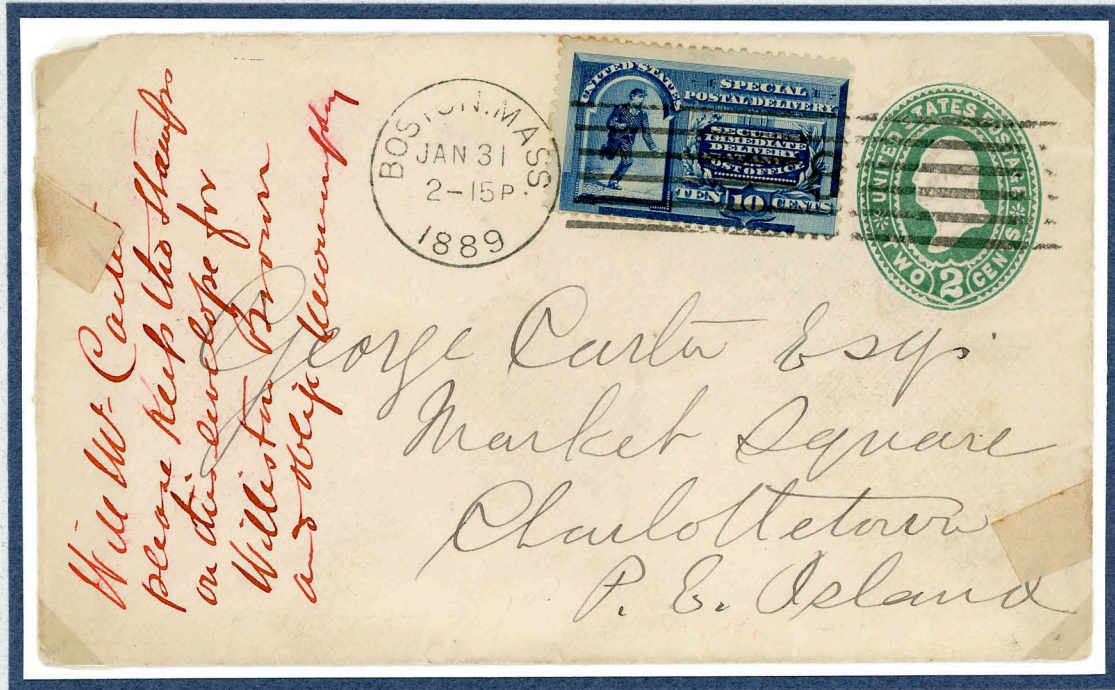 Will Mr. Carter
please keep the stamps
on this envelope for
Williston Brown
and oblige
BOSTON. MASS.
JAN 31
2-15P
1889
UNITED STATES
SPECIAL
POSTAL DELIVERY
SECURES
IMMEDIATE
DELIVERY
POST OFFICE
TEN 10 CENTS
UNITED STATES POSTAGE
TWO 2 CENTS
George Carter Esq.
Market Square
Charlottetown
P. E. Island